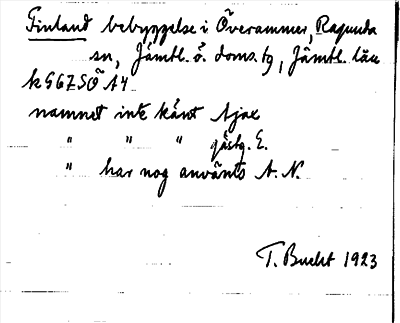 Finland bebyggelse i Överammer, Ragunda
sn, Jämtl. ö. doms. tg, Jämtl. län
k G67 SÖ A4
namnet inte känt Ajax
" " " gästg. E.
" har nog använts A. N.
T. Bucht 1923